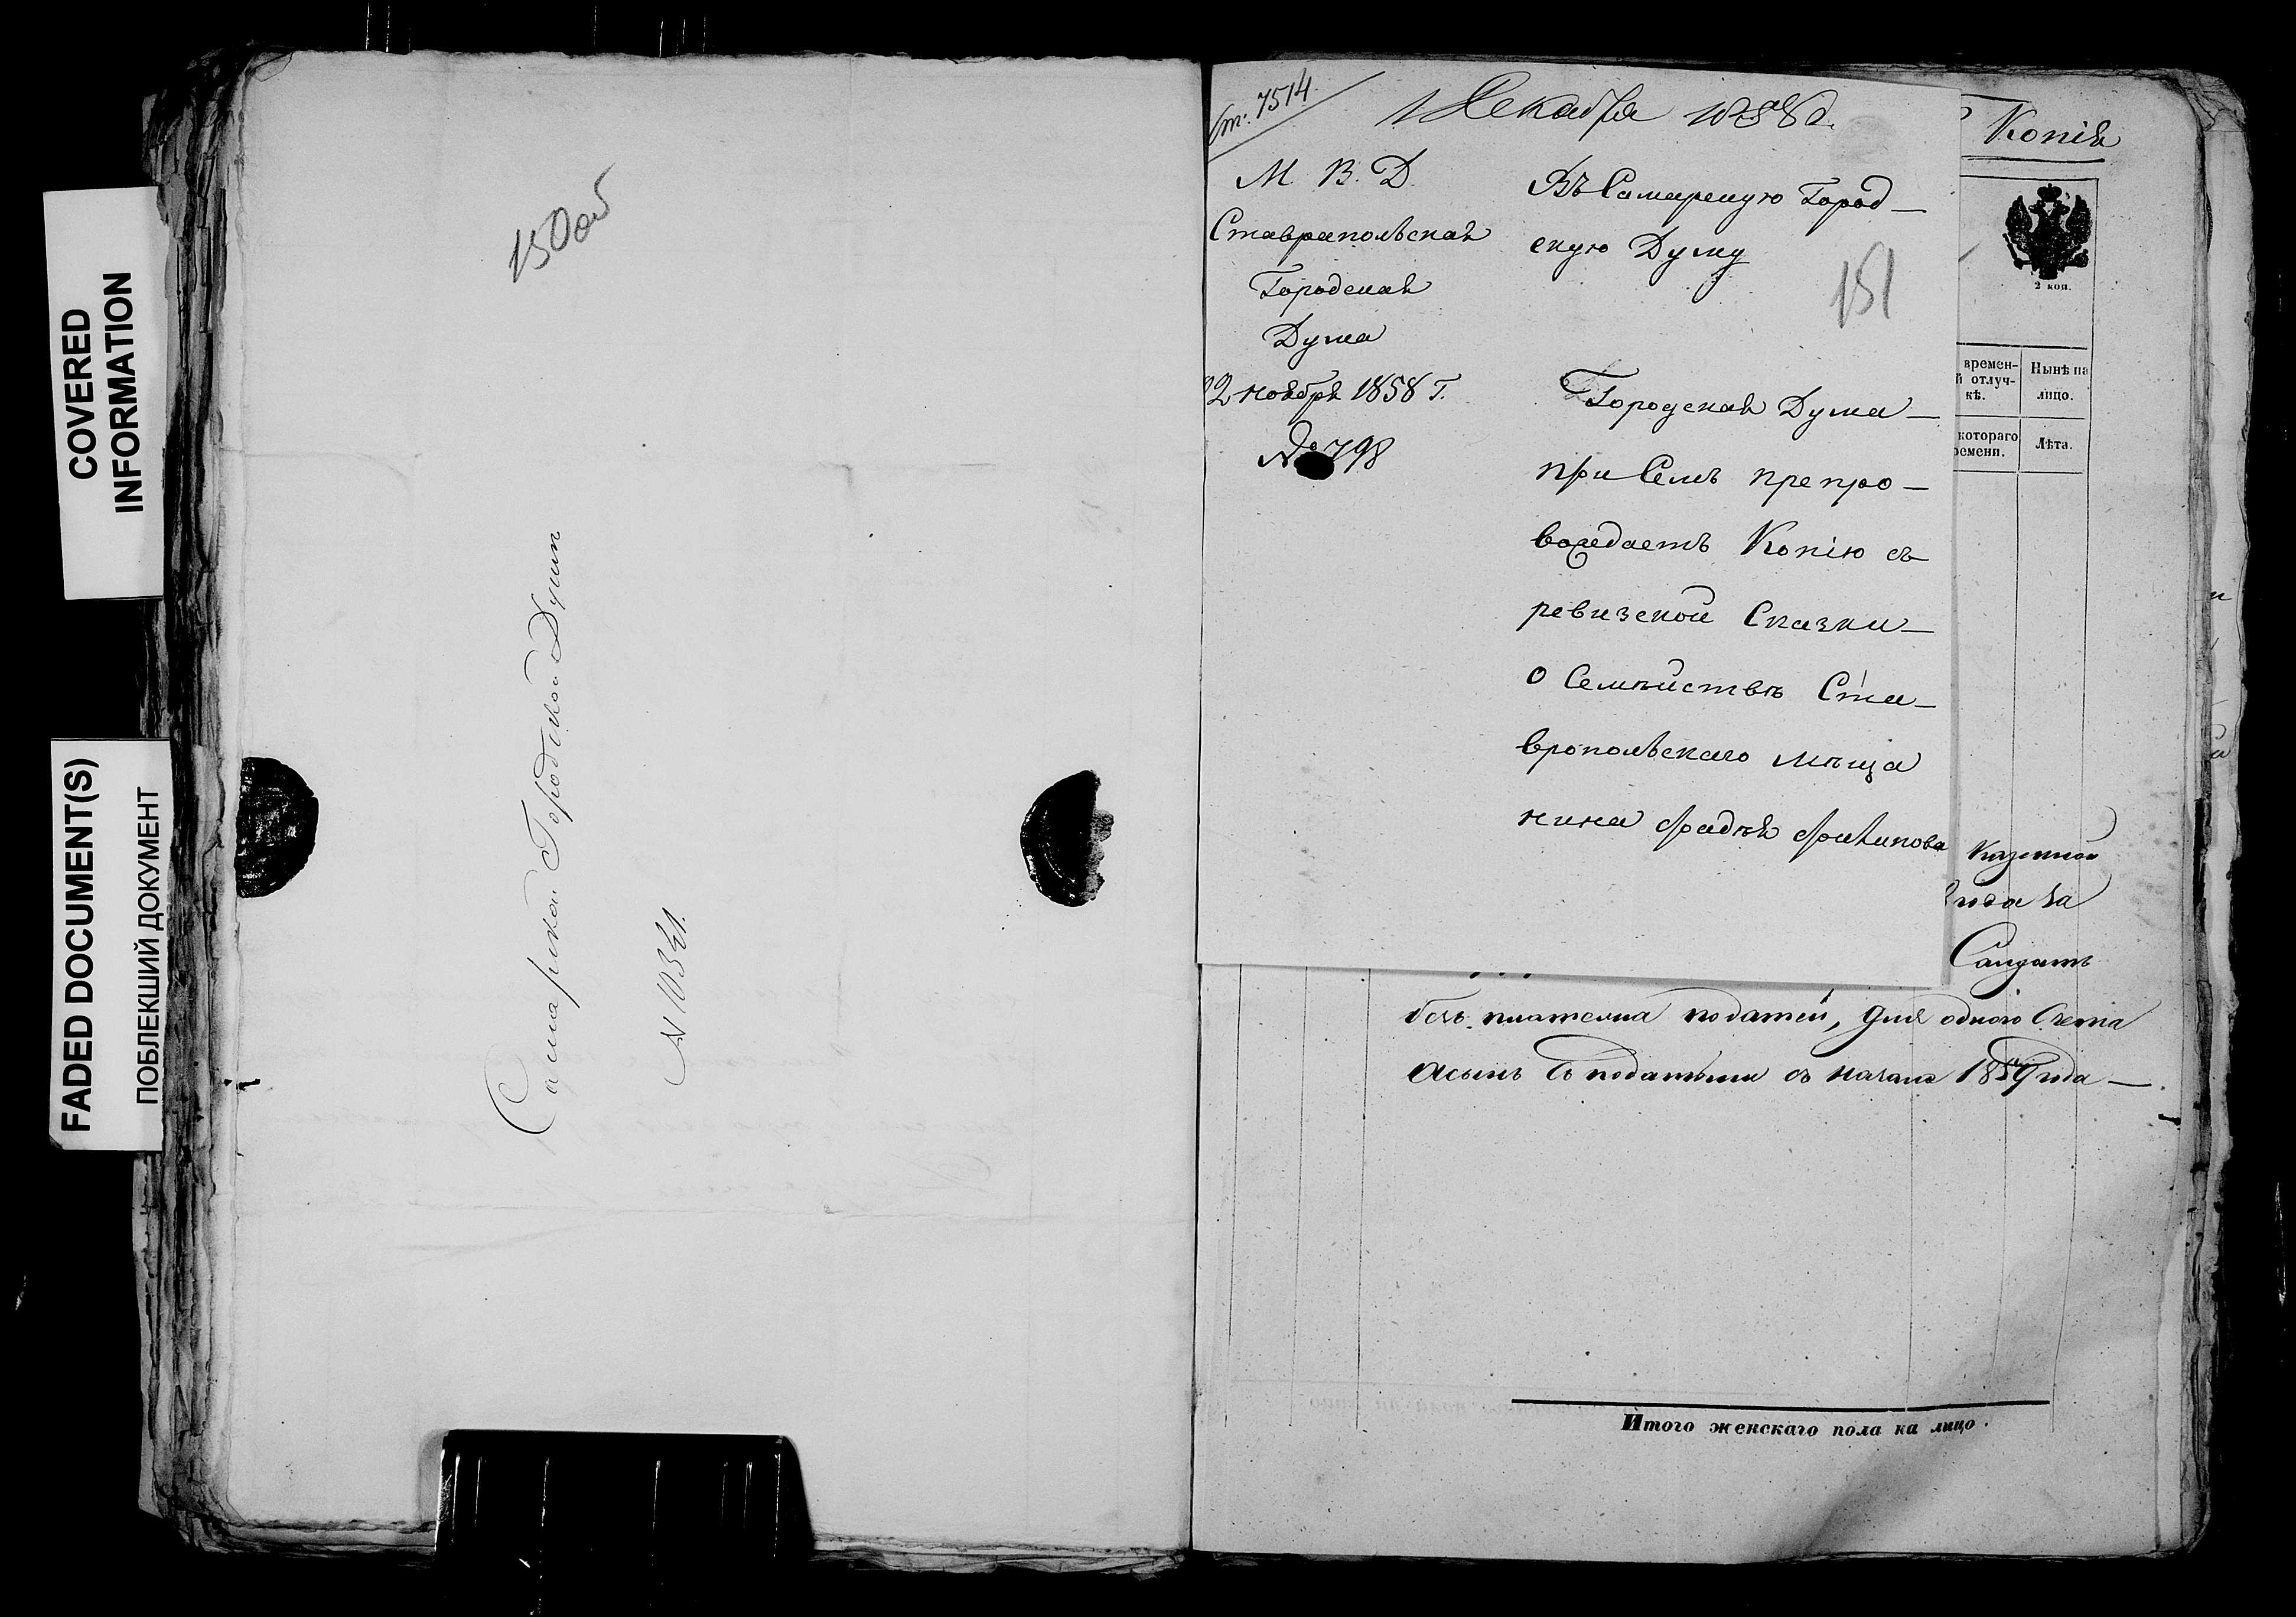 COVERED
INFORMATION
FADED DOCUMENT(S)
ПОБЛЕКШИЙ ДОКУМЕНТ
150об
Самарской Городской Думы
№ 10341.
Ст. 7514
1 Декабря 1858 г.
М. В. Д.
Ставропольская
Городская
Дума
22 ноября 1858 г.
№ 798
Въ Самарскую Город-
скую Думу
151
Городская Дума
при семъ препро-
вождаетъ Копію съ
ревизской Сказки
о Семѣйствѣ Ста-
вропольскаго мѣща
нина Фадѣя Филипова
Копія
2 коп.
времен-
й отлуч-
кѣ.
Нынѣ на
лицо.
котораго
ремени.
Лѣта.
Казенной
года за
безъ платежа податей, для одного счета
асынъ съ податьми съ начала 1859 года
Итого женскаго пола на лицо.